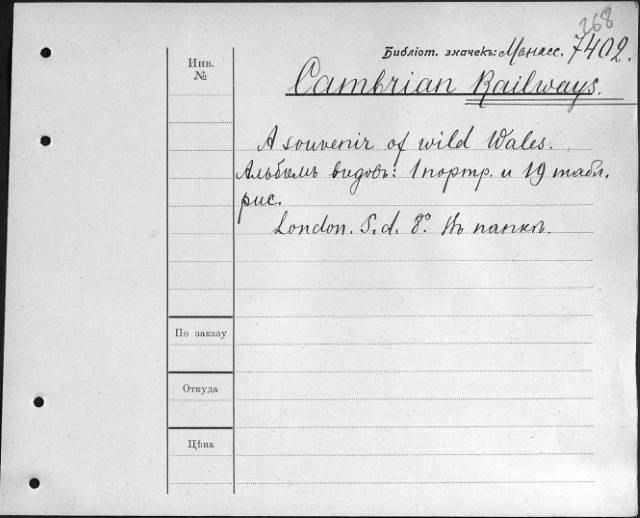 268
Библіот. значекъ: Манасс. 7402.
Cambrian Railways.
Инв.
№
A souvenir of wild Wales.
Альбомъ видовъ: 1 портр. и 19 табл.
рис.
London. S.d. 8°. Въ папкѣ.
По заказу
Откуда
Цѣна